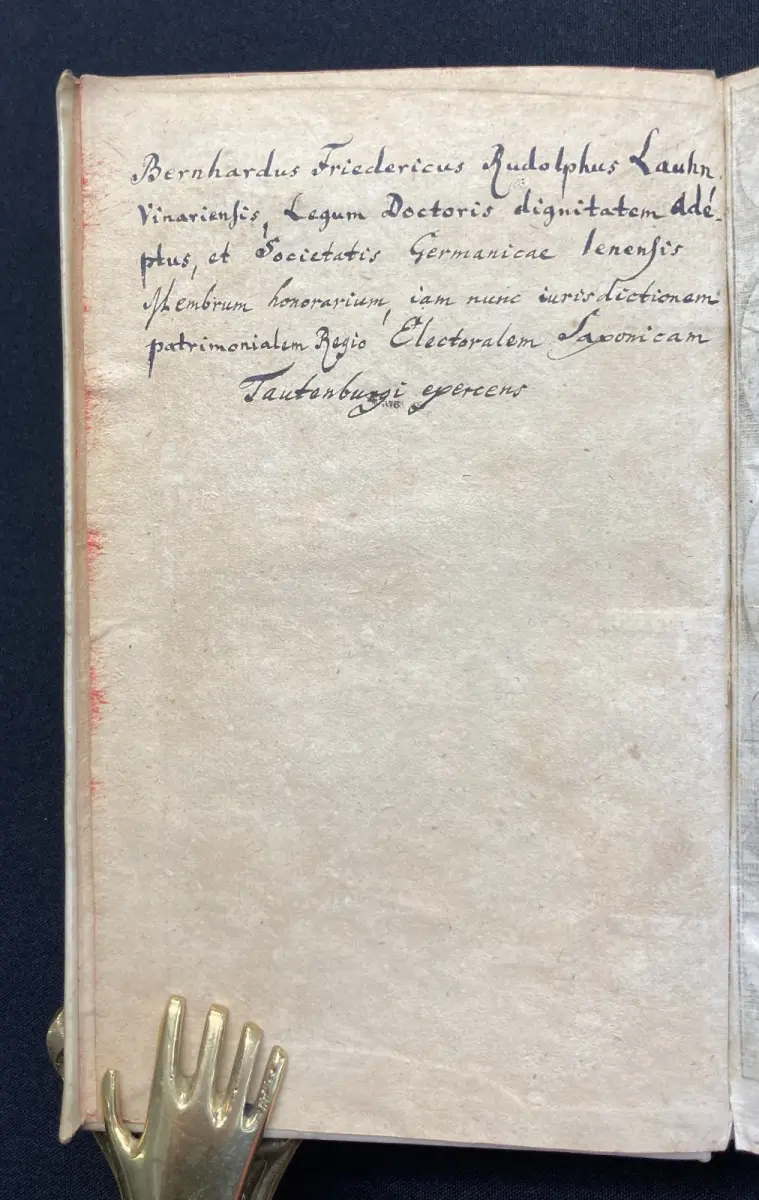 Bernhardus Friedericus Rudolphus Lauhn
Vinariensis, Legum Doctoris dignitatem Adé-
ptus, et Societatis Germanicae Ienensis
Membrum honorarium, iam nunc iurisdictionem
patrimonialem Regio Electoralem Saxonicam
Tautenburgi exercens